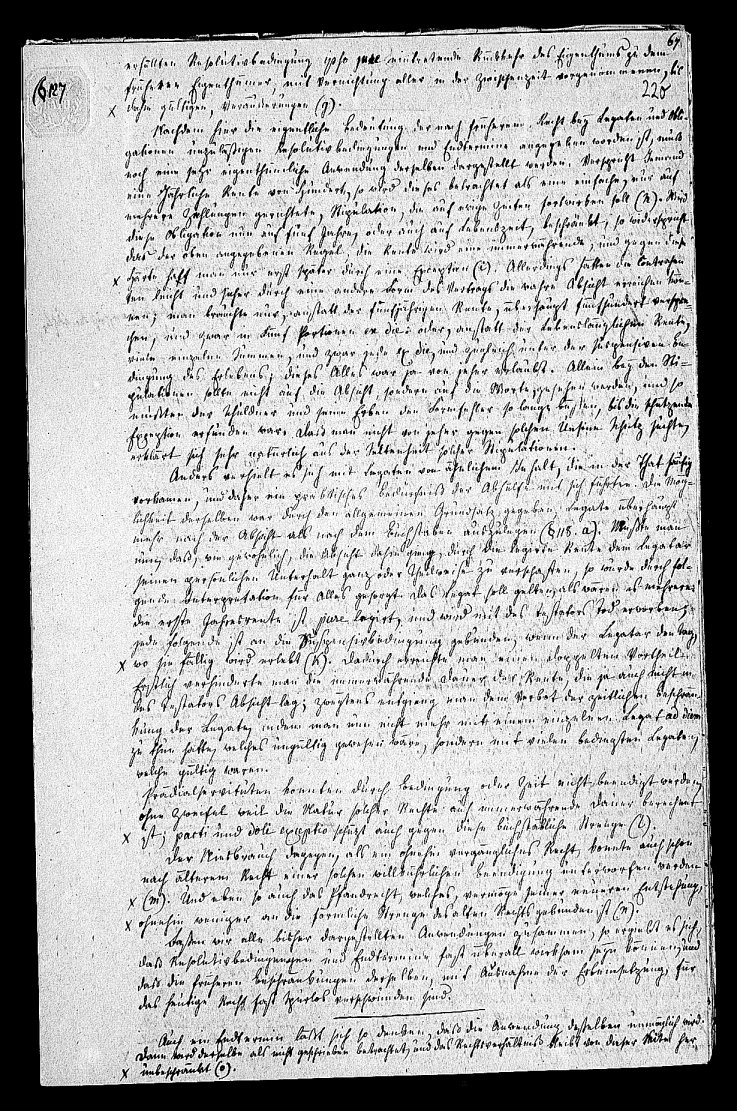 67
§127
220
erfüllten Resolutivbedingung ipso jure eintretende Rückkehr des Eigenthums zu dem
früheren Eigenthümer, mit Vernichtung aller in der Zwischenzeit vorgenommenen, bis
x dahin gültigen, Veräußerungen (g).
Nachdem hier die eigentliche Bedeutung der nach früherem Recht bey Legaten und Obli-
gationen unzulässigen Resolutivbedingungen und Endtermine angegeben worden ist, muß
noch eine sehr eigenthümliche Anwendung derselben dargestellt werden. Verspricht Jemand
eine jährliche Rente von Hundert, so wird dieses betrachtet als eine einfache, nur auf
mehrere Zahlungen gerichtete, Stipulation, die auf ewige Zeiten fortwirken soll (h). Wird
diese Obligation nun auf fünf Jahre, oder auch auf Lebenszeit, beschränkt, so widerspricht
das der oben angegebenen Regel, die Rente wird eine immerwährende, und gegen diese
x Härte half man nur erst später durch eine Exception (i). Allerdings hätten die Contrahen-
ten leicht und sicher durch eine andere Form des Vertrags die wahre Absicht erreichen kön-
nen; man brauchte nur, anstatt der fünfjährigen Rente, überhaupt Fünfhundert verspre-
chen, und zwar in fünf Portionen ex die: oder, anstatt der lebenslänglichen Rente,
viele einzelne Summen, und zwar jede ex die, und zugleich unter der suspensiven Be-
dingung des Erlebens; dieses Alles war ja von jeher erlaubt. Allein bey den Sti-
pulationen sollte nicht auf die Absicht, sondern auf die Worte, gesehen werden, und so
mußten der Schuldner und seine Erben den Formfehler so lange büßen, bis die schützende
Exception erfunden war. Daß man nicht von jeher gegen solchen Unsinn Schutz suchte,
erklärt sich sehr natürlich aus der Seltenheit solcher Stipulationen.
Anders verhielt es sich mit Legaten von ähnlichem Inhalt, die in der That häufig
vorkamen, und daher ein praktisches Bedürfniß der Abhülfe mit sich führten. Die Mög-
lichkeit derselben war durch den allgemeinen Grundsatz gegeben, Legate überhaupt
mehr nach der Absicht als nach dem Buchstaben auszulegen (§ 118. a). Wußte man
nun, daß, wie gewöhnlich, die Absicht dahin ging, durch die legirte Rente dem Legatar
seinen persönlichen Unterhalt ganz oder theilweise zu verschaffen, so wurde durch fol-
gende Interpretation für Alles gesorgt. Das Legat soll gelten, als wären es mehrere;
die erste Jahresrente ist pure legirt, und wird mit des Testators Tod erworben,
jede folgende ist an die Suspensivbedingung gebunden, wenn der Legatar den Tag,
x wo sie fällig wird erlebt (k). Dadurch erreichte man einen doppelten Vortheil.
Erstlich verhinderte man die immerwährende Dauer der Rente, die ja auch nicht in
des Testators Absicht lag; zweytens entgieng man dem Verbot der zeitlichen Beschrän-
kung der Legate, indem man nun nicht mehr mit einem einzelnen Legat ad diem
zu thun hatte, welches ungültig gewesen wäre, sondern mit vielen bedingten Legaten,
welche gültig waren.
Prädialservituten konnten durch Bedingung oder Zeit nicht beendigt werden,
ohne Zweifel weil die Natur solcher Rechte auf immerwährende Dauer berechnet
x ist; pacti und doli exceptio schützt auch gegen diese buchstäbliche Strenge (l).
Der Niesbrauch dagegen, als ein ohnehin vergängliches Recht, konnte auch schon
nach älterem Recht einer solchen willkührlichen Beendigung unterworfen werden
x (m). Und eben so auch das Pfandrecht, welches, vermöge seiner neueren Entstehung,
x ohnehin weniger an die förmliche Strenge des alten Rechts gebunden ist (n).
Fassen wir alle bisher dargestellten Anwendungen zusammen, so ergiebt es sich,
daß Resolutivbedingungen und Endtermine fast überall wirksam seyn können, und
daß die früheren Beschränkungen derselben, mit Ausnahme der Erbeinsetzung, für
das heutige Recht fast spurlos verschwunden sind.
Auch ein Endtermin läßt sich so denken, daß die Anwendung desselben unmöglich wird.
Dann wird derselbe als nicht geschrieben betrachtet, und das Rechtsverhältniß bleibt von dieser Seite her
x unbeschränkt (o).